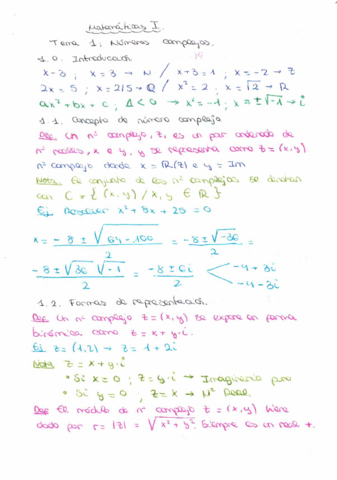 Matemáticas I.
Tema 1: Números complejos.
1.0. Introducción.
x-3 ; x = 3 → N / x+3=1 ; x=-2 → Z
2x = 5 ; x = 2/5 → Q / x² = 2 ; x = √2 → R
ax² + bx + c ; Δ < 0 → x² = -1 ; x = ±√-1 → i
1.1. Concepto de número complejo
Def Un nº complejo, z, es un par ordenado de
nº reales, x e y, y se representa como z = (x,y)
nº complejo donde x = R(z) e y = Im
Nota: El conjunto de los nº complejos se denotan
con C = { (x,y) / x, y ∈ R }
Ej Resolver x² + 8x + 25 = 0
x = -8 ± √64-100 / 2 = -8 ± √-36 / 2 =
-8 ± √36 √-1 / 2 = -8 ± 6i / 2 < -4 + 3i
-4 - 3i
1.2. Formas de representación.
Def Un nº complejo z = (x,y) se expone en forma
binómica como z = x + y·i.
Ej z = (1,2) → z = 1 + 2i
Nota z = x + y·i
• Si x = 0 ; z = y·i → Imaginario puro
• Si y = 0 ; z = x → Nº Real.
Def El módulo de nº complejo z = (x,y) viene
dado por r = |z| = √x² + y². Siempre es un real +.